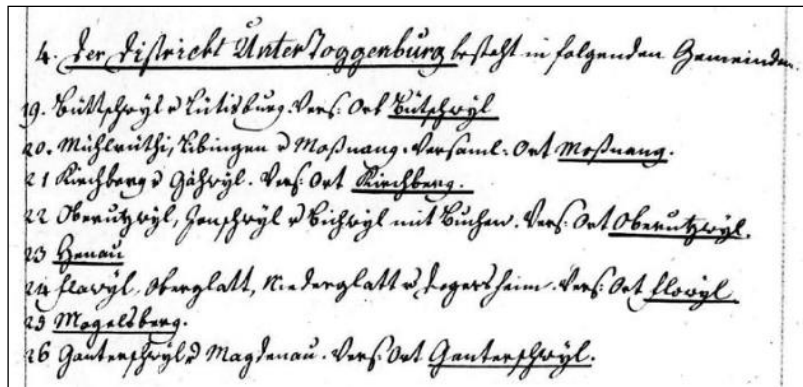 4. Der District UnterToggenburg besteht in folgenden Gemeinden.
19. Büttschwyl u Lütisburg. Vers: Ort Bütschwyl
20. Mühlrüthi, Libingen u Moßnang. Versaml: Ort Moßnang.
21 Kirchberg u Gähwyl. Vers: Ort Kirchberg.
22 Oberutzwyl, Jonschwyl u Bichwyl mit Buchen. Vers: Ort Oberutzwyl.
23 Henau
24 flawyl, Oberglatt, Niederglatt u Degersheim. Vers: Ort flawyl
25 Mogelsberg.
26 Ganterschwyl u Magdenau. Vers: Ort Ganterschwyl.